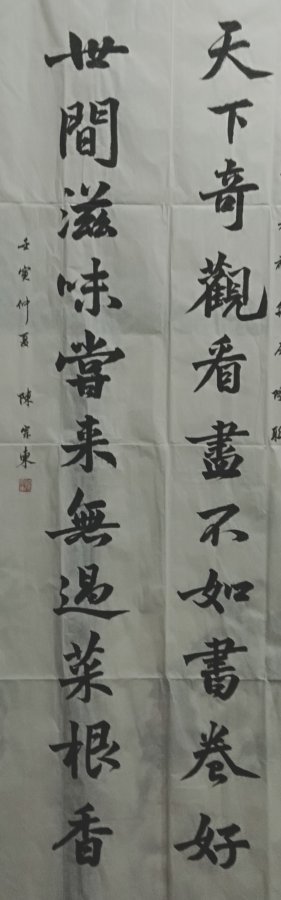 天下奇觀看盡不如書卷好
世間滋味嘗来無過菜根香
壬寅仲夏 陳宗東